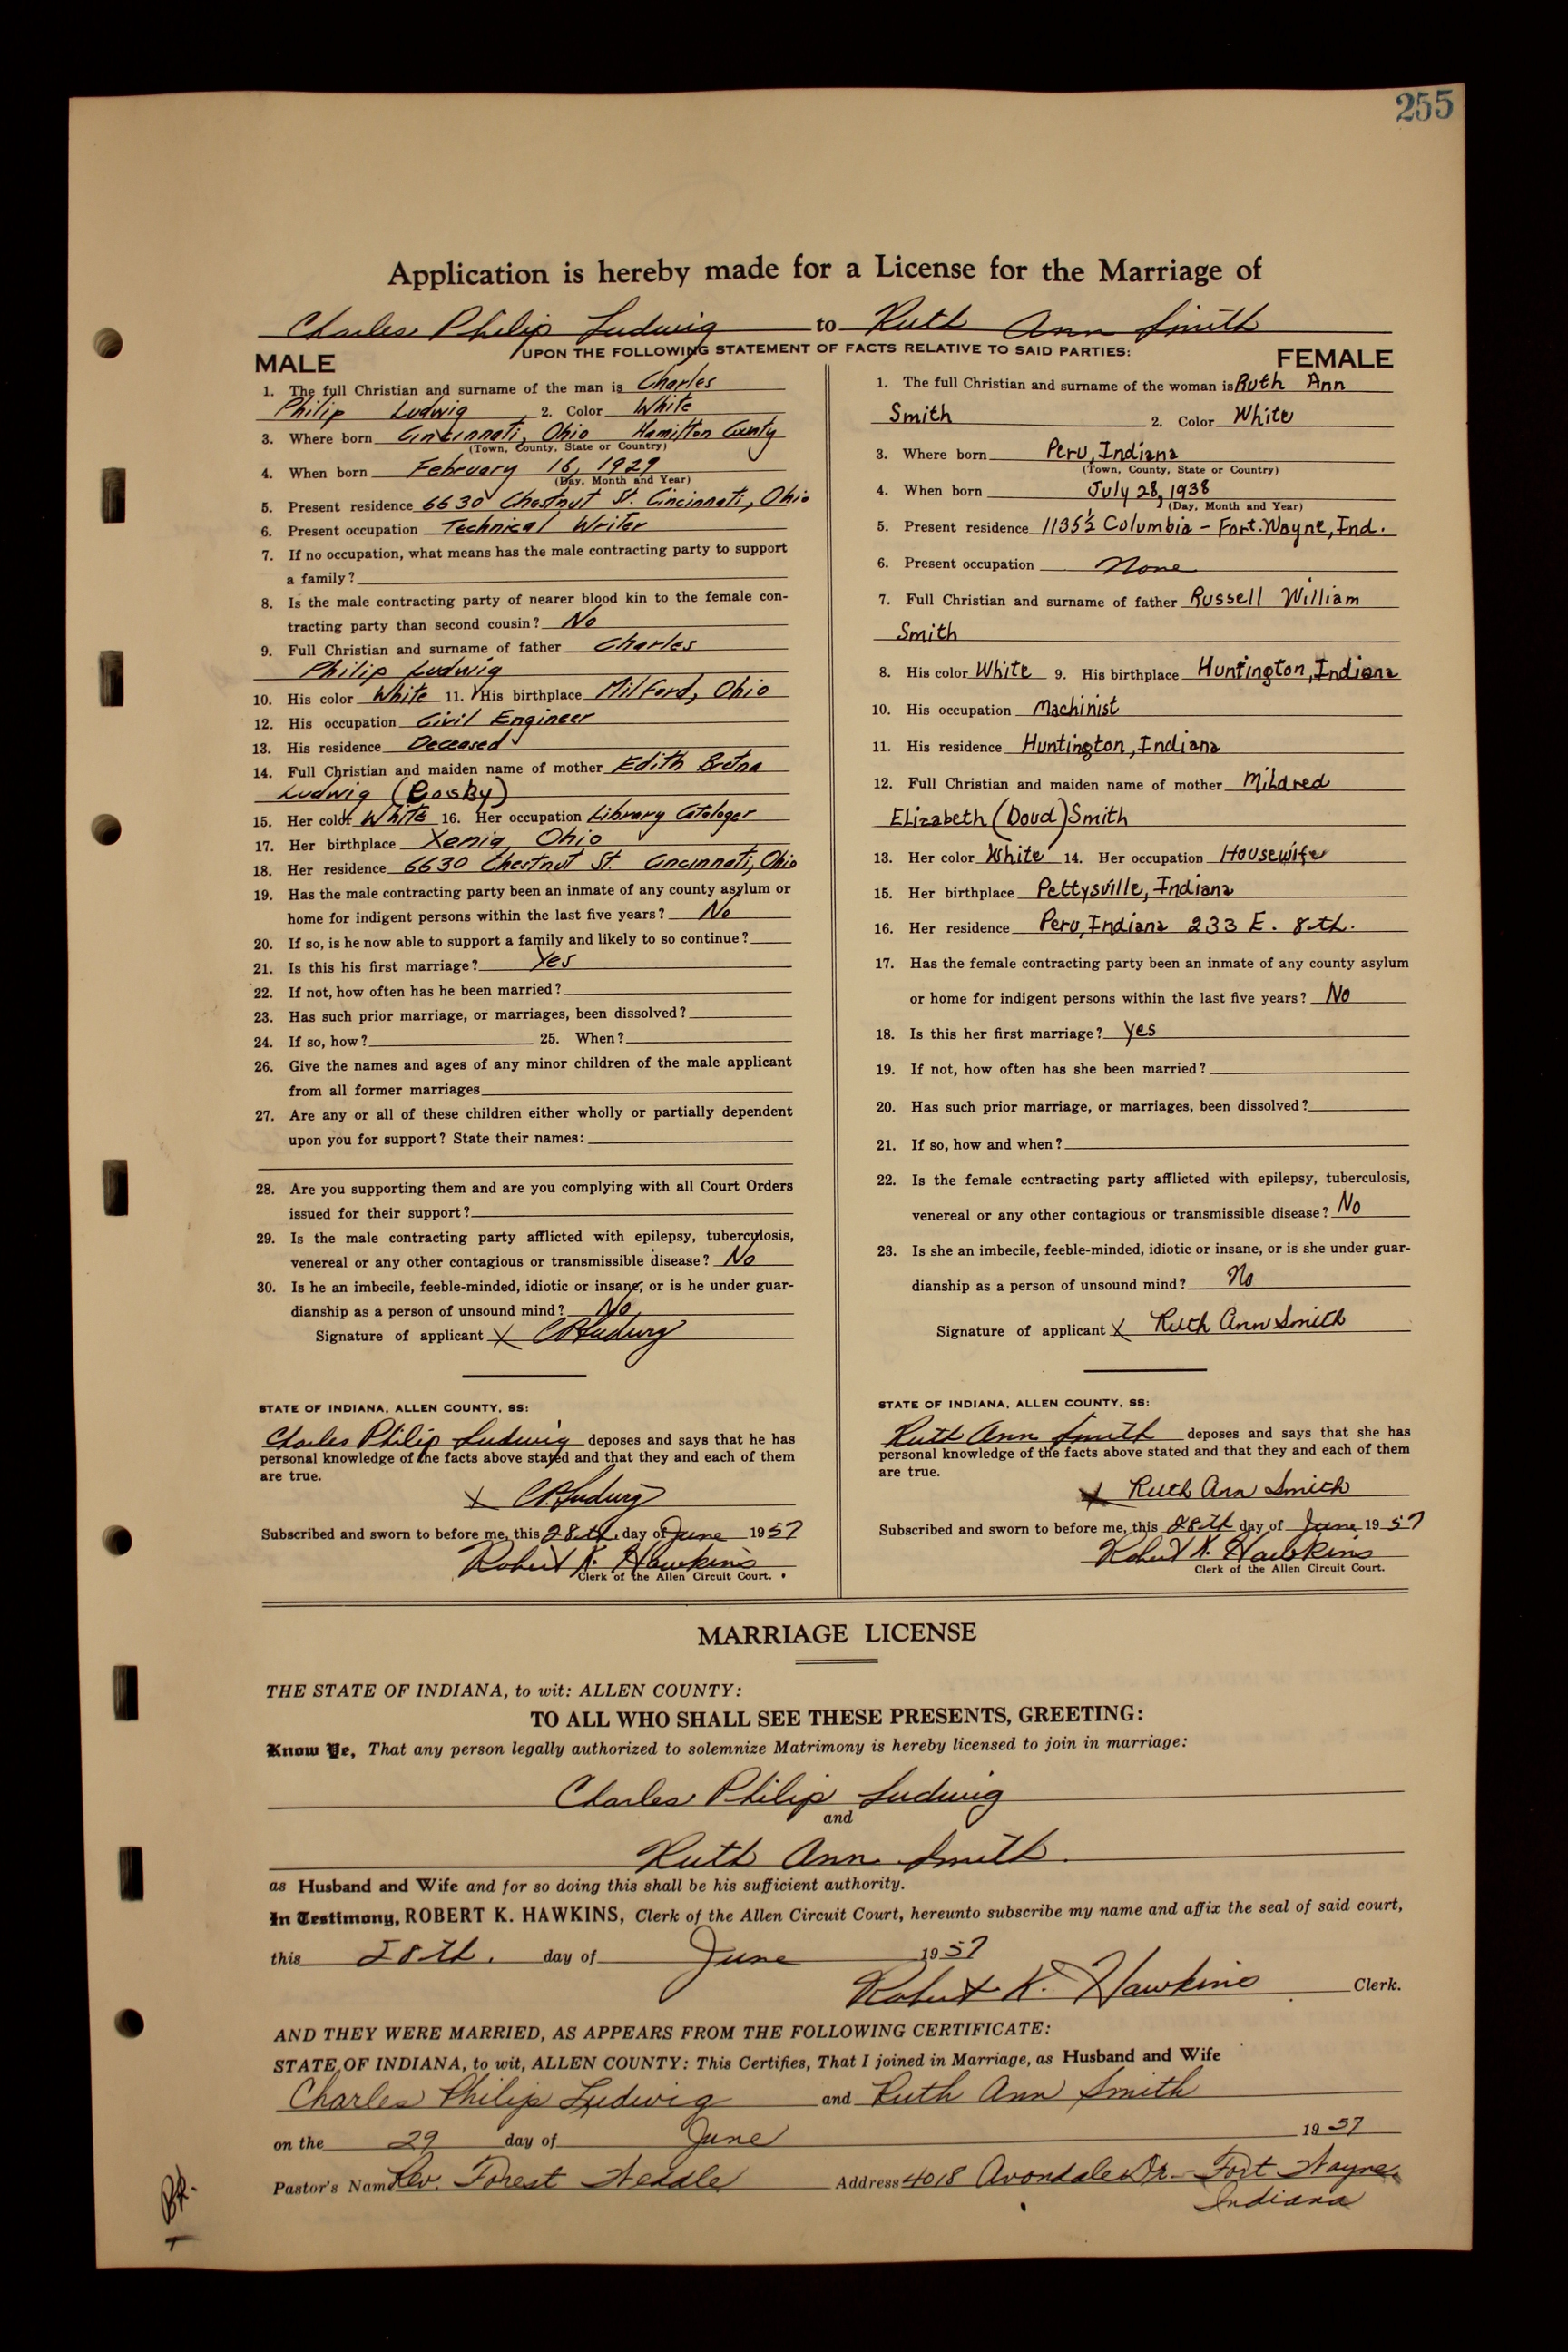 255
Application is hereby made for a License for the Marriage of
Charles Philip Ludwig to Ruth Ann Smith
UPON THE FOLLOWING STATEMENT OF FACTS RELATIVE TO SAID PARTIES:
MALE
1. The full Christian and surname of the man is Charles
Philip Ludwig 2. Color White
3. Where born Cincinnati, Ohio Hamilton County
(Town, County, State or Country)
4. When born February 16, 1929
(Day, Month and Year)
5. Present residence 6630 Chestnut St. Cincinnati, Ohio
6. Present occupation Technical Writer
7. If no occupation, what means has the male contracting party to support
a family?
8. Is the male contracting party of nearer blood kin to the female con-
tracting party than second cousin? No
9. Full Christian and surname of father Charles
Philip Ludwig
10. His color White 11. His birthplace Milford, Ohio
12. His occupation Civil Engineer
13. His residence Deceased
14. Full Christian and maiden name of mother Edith
Ludwig
15. Her color White 16. Her occupation Library Cataloger
17. Her birthplace Xenia Ohio
18. Her residence 6630 Chestnut St. Cincinnati, Ohio
19. Has the male contracting party been an inmate of any county asylum or
home for indigent persons within the last five years? No
20. If so, is he now able to support a family and likely to so continue?
21. Is this his first marriage? Yes
22. If not, how often has he been married?
23. Has such prior marriage, or marriages, been dissolved?
24. If so, how? 25. When?
26. Give the names and ages of any minor children of the male applicant
from all former marriages
27. Are any or all of these children either wholly or partially dependent
upon you for support? State their names:
28. Are you supporting them and are you complying with all Court Orders
issued for their support?
29. Is the male contracting party afflicted with epilepsy, tuberculosis,
venereal or any other contagious or transmissible disease? No
30. Is he an imbecile, feeble-minded, idiotic or insane, or is he under guar-
dianship as a person of unsound mind? No
Signature of applicant X CPLudwig
STATE OF INDIANA, ALLEN COUNTY, SS:
Charles Philip Ludwig deposes and says that he has
personal knowledge of the facts above stated and that they and each of them
are true.
X C.P. Ludwig
Subscribed and sworn to before me, this 28th. day of June 1957
Robert K. Hawkins
Clerk of the Allen Circuit Court.
FEMALE
1. The full Christian and surname of the woman is Ruth Ann
Smith 2. Color White
3. Where born Peru, Indiana
(Town, County, State or Country)
4. When born July 28, 1938
(Day, Month and Year)
5. Present residence 1135½ Columbia - Fort. Wayne, Ind.
6. Present occupation None
7. Full Christian and surname of father Russell William
Smith
8. His color White 9. His birthplace Huntington, Indiana
10. His occupation Machinist
11. His residence Huntington, Indiana
12. Full Christian and maiden name of mother Mildred
Elizabeth (Doud) Smith
13. Her color White 14. Her occupation Housewife
15. Her birthplace Pettysville, Indiana
16. Her residence Peru, Indiana 233 E. 8th.
17. Has the female contracting party been an inmate of any county asylum
or home for indigent persons within the last five years? No
18. Is this her first marriage? yes
19. If not, how often has she been married?
20. Has such prior marriage, or marriages, been dissolved?
21. If so, how and when?
22. Is the female contracting party afflicted with epilepsy, tuberculosis,
venereal or any other contagious or transmissible disease? No
23. Is she an imbecile, feeble-minded, idiotic or insane, or is she under guar-
dianship as a person of unsound mind? No
Signature of applicant X Ruth Ann Smith
STATE OF INDIANA, ALLEN COUNTY, SS:
Ruth Ann Smith deposes and says that she has
personal knowledge of the facts above stated and that they and each of them
are true.
X Ruth Ann Smith
Subscribed and sworn to before me, this 28th day of June 1957
Robert K. Hawkins
Clerk of the Allen Circuit Court.
MARRIAGE LICENSE
THE STATE OF INDIANA, to wit: ALLEN COUNTY:
TO ALL WHO SHALL SEE THESE PRESENTS, GREETING:
Know Ye, That any person legally authorized to solemnize Matrimony is hereby licensed to join in marriage:
Charles Philip Ludwig
and
Ruth Ann Smith.
as Husband and Wife and for so doing this shall be his sufficient authority.
In Testimony, ROBERT K. HAWKINS, Clerk of the Allen Circuit Court, hereunto subscribe my name and affix the seal of said court,
this 28th. day of June 1957
Robert K. Hawkins Clerk.
AND THEY WERE MARRIED, AS APPEARS FROM THE FOLLOWING CERTIFICATE:
STATE OF INDIANA, to wit, ALLEN COUNTY: This Certifies, That I joined in Marriage, as Husband and Wife
Charles Philip Ludwig and Ruth Ann Smith
on the 29 day of June 1957
Pastor's Name Rev. Forest Weddle Address 4018 Avondale Dr. - Fort Wayne
Indiana